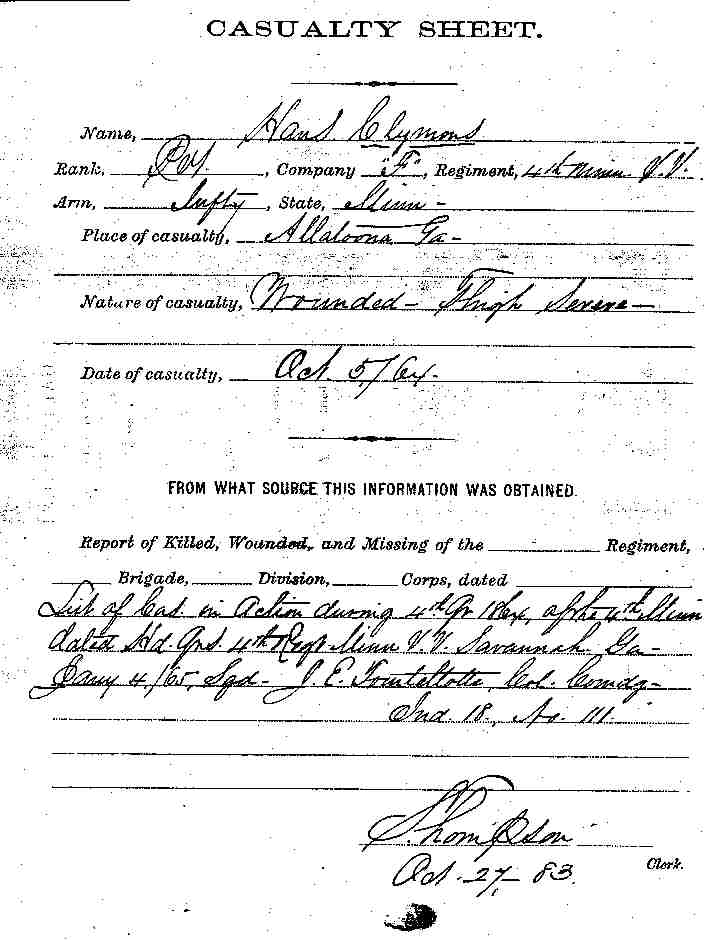 CASUALTY SHEET.
Name, Hans Clymons
Rank, Pvt. , Company "F" , Regiment, 4th Minn V.V.
Arm, Infty , State, Minn -
Place of casualty, Allatoona Ga -
Nature of casualty, Wounded - Thigh Severe -
Date of casualty, Oct. 5/64.
FROM WHAT SOURCE THIS INFORMATION WAS OBTAINED.
Report of Killed, Wounded, and Missing of the Regiment,
Brigade, Division, Corps, dated
List of Cas. in Action during 4th Qr 1864, of the 4th Minn
dated Hd Qrs. 4th Regt Minn V.V. Savannah Ga -
Jany 4/65, Sgd - J. E. Tourtellotte, Col. Comdg -
Ind. 18, No. 111.
Thompson
Clerk.
Oct. 27, 83.